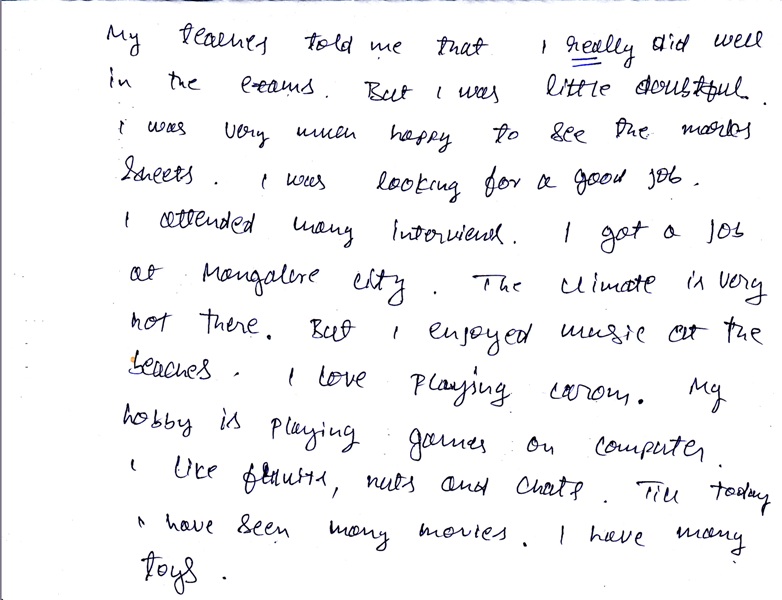 My teacher told me that I really did well
in the exams. But I was little doubtful.
I was very much happy to see the marks
sheets. I was looking for a good job.
I attended many interviews. I got a job
at Mangalore city. The climate is very
hot there. But I enjoyed music at the
beaches. I love playing carom. My
hobby is playing games on computer.
I like fruits, nuts and chats. Till today
I have seen many movies. I have many
toys.